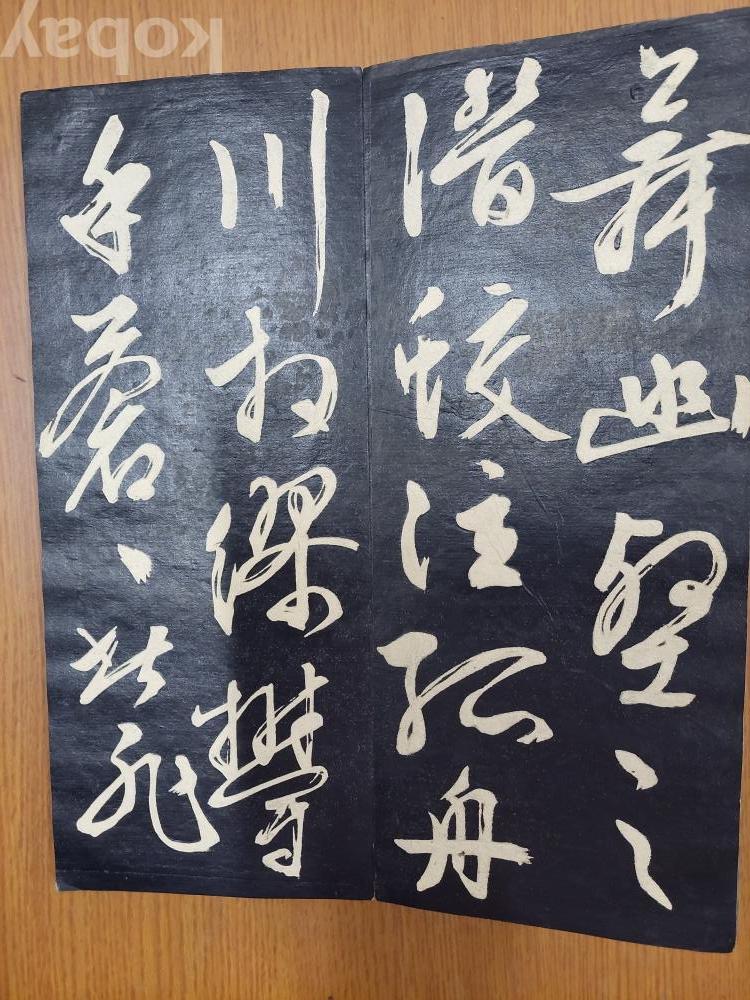 舞幽壑之
潛蛟泣孤舟
川相繆鬱
乎蒼〻此非
kobay